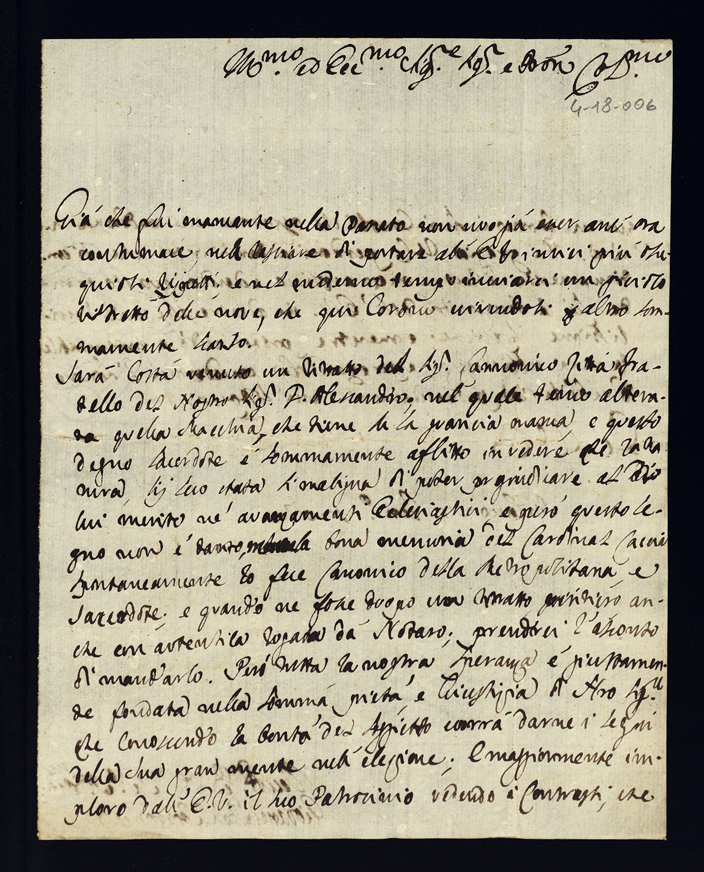 Ill.mo ed Ecc.mo Sig.e Sig.e e Pron Col.mo
4-18-006
Già che fui mancante nella Passata non vivo più esser anc'ora
contumace nell'
di portare all'E. V. i miei più osse-
quiosi rispetti, e nel medemo tempo inviarci un piccolo
ristretto delle nove, che qui corrono essendosi p altro som-
mamente scarso.
Sarà costà venuto un ritratto del Sig.r Cannonico Città fra-
tello del Nostro Sig.r D. Alesandro, nel quale
altera-
ta quella Macchia, che tiene sù la guancia manca, e questo
degno Sacerdote è sommamente aflitto in vedere che la na-
tura, sij seco stata sì maligna di poter pregiudicare al dilo
lui merito né avanzamenti Eclesiastici e però questo se-
gno non è tanto, mentre la bona memoria del Cardinal Caccia
spontaneamente lo fece Canonico della Metropolitana, e
Sacerdote; e quando ne fosse d'uopo un ritratto
an-
che con autentica rogata da Notaro, prenderei l'asonto
di mandarlo. Però tutta la nostra speranza è giustamen-
te fondata nella somma pietà e Giustizia di Nro Sig.re
che conoscendo la bontà del sogietto vorrà darne i segni
della sua gran mente nell'elezione; e maggiormente im-
ploro dall'E. V. il suo Patrocinio vedendo i Contrasti, che